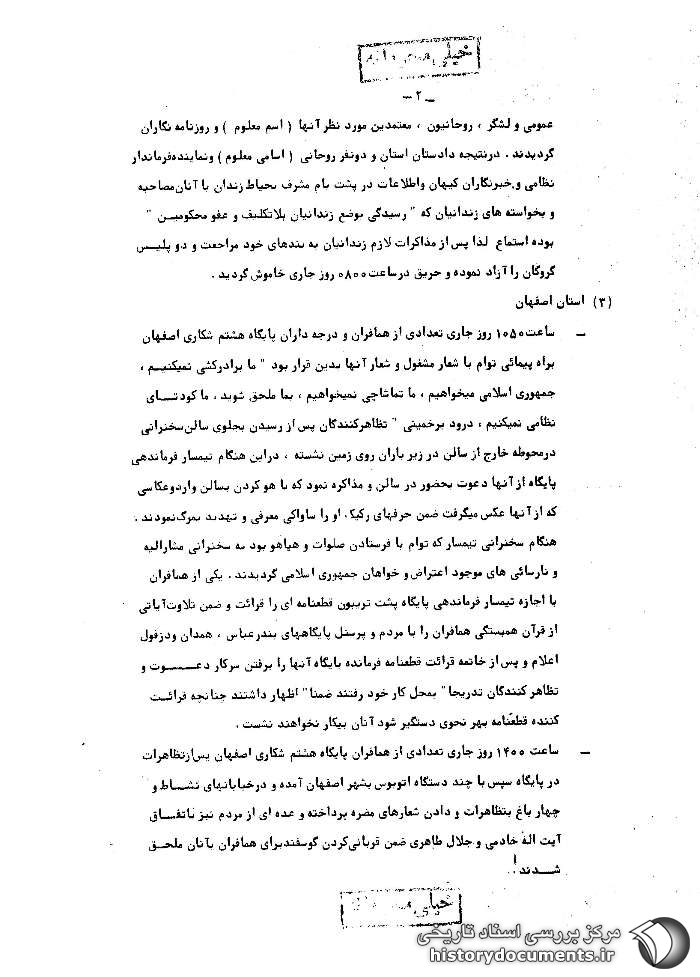 خیلی
ـ ۲ ـ
عمومی و لشگر ، روحانیون ، معتمدین مورد نظر آنها ( اسم معلوم ) و روزنامه نگاران
گردیدند . درنتیجه دادستان استان و دونفر روحانی ( اسامی معلوم ) ونماینده‌فرماندار
نظامی و خبرنگاران کیهان واطلاعات در پشت بام مشرف بحیاط زندان با آنان‌مصاحبه
و بخواسته های زندانیان که " رسیدگی بوضع زندانیان بلاتکلیف و عفو محکومین "
بوده استماع لذا پس از مذاکرات لازم زندانیان به بندهای خود مراجعت و دو پلیس
گروگان را آزاد نموده و حریق درساعت ۰۸۰۰ روز جاری خاموش گردید .
(۳) استان اصفهان
ـ ساعت ۱۰۵۰ روز جاری تعدادی از همافران و درجه داران پایگاه هشتم شکاری اصفهان
براه پیمائی توام با شعار مشغول و شعار آنها بدین قرار بود " ما برادرکشی نمیکنیم ،
جمهوری اسلامی میخواهیم ، ما تماشاچی نمیخواهیم ، بما ملحق شوید ، ما کودتـای
نظامی نمیکنیم ، درود برخمینی " تظاهرکنندگان پس از رسیدن بجلوی سالن‌سخنرانی
درمحوطه خارج از سالن در زیر باران روی زمین نشسته ، دراین هنگام تیمسار فرماندهی
پایگاه از آنها دعوت بحضور در سالن و مذاکره نمود که با هو کردن بسالن واردوعکاسی
که از آنها عکس میگرفت ضمن حرفهای رکیک او را ساواکی معرفی و تهدید بمرگ‌نمودند .
هنگام سخنرانی تیمسار که توام با فرستادن صلوات و هیاهو بود به سخنرانی مشارالیه
و نارسائی های موجود اعتراض و خواهان جمهوری اسلامی گردیدند . یکی از همافران
با اجازه تیمسار فرماندهی پایگاه پشت تریبون قطعنامه ای را قرائت و ضمن تلاوت‌آیاتی
از قرآن همبستگی همافران را با مردم و پرسنل پایگاههای بندرعباس ، همدان ودزفول
اعلام و پس از خاتمه قرائت قطعنامه فرمانده پایگاه آنها را برفتن سرکار دعـــوت و
تظاهر کنندگان تدریجا" بمحل کار خود رفتند ضمنا" اظهار داشتند چنانچه قرائـت
کننده قطعنامه بهر نحوی دستگیر شود آنان بیکار نخواهند نشست .
ـ ساعت ۱۴۰۰ روز جاری تعدادی از همافران پایگاه هشتم شکاری اصفهان پس‌ازتظاهرات
در پایگاه سپس با چند دستگاه اتوبوس بشهر اصفهان آمده و درخیابانهای نشـاط و
چهار باغ بتظاهرات و دادن شعارهای مضره پرداخته و عده ای از مردم نیز باتفـاق
آیت اله خادمی و جلال طاهری ضمن قربانی‌کردن گوسفندبرای همافران بآنان ملحـق
شـدند .
خیلی
مرکز بررسی اسناد تاریخی
historydocuments.ir